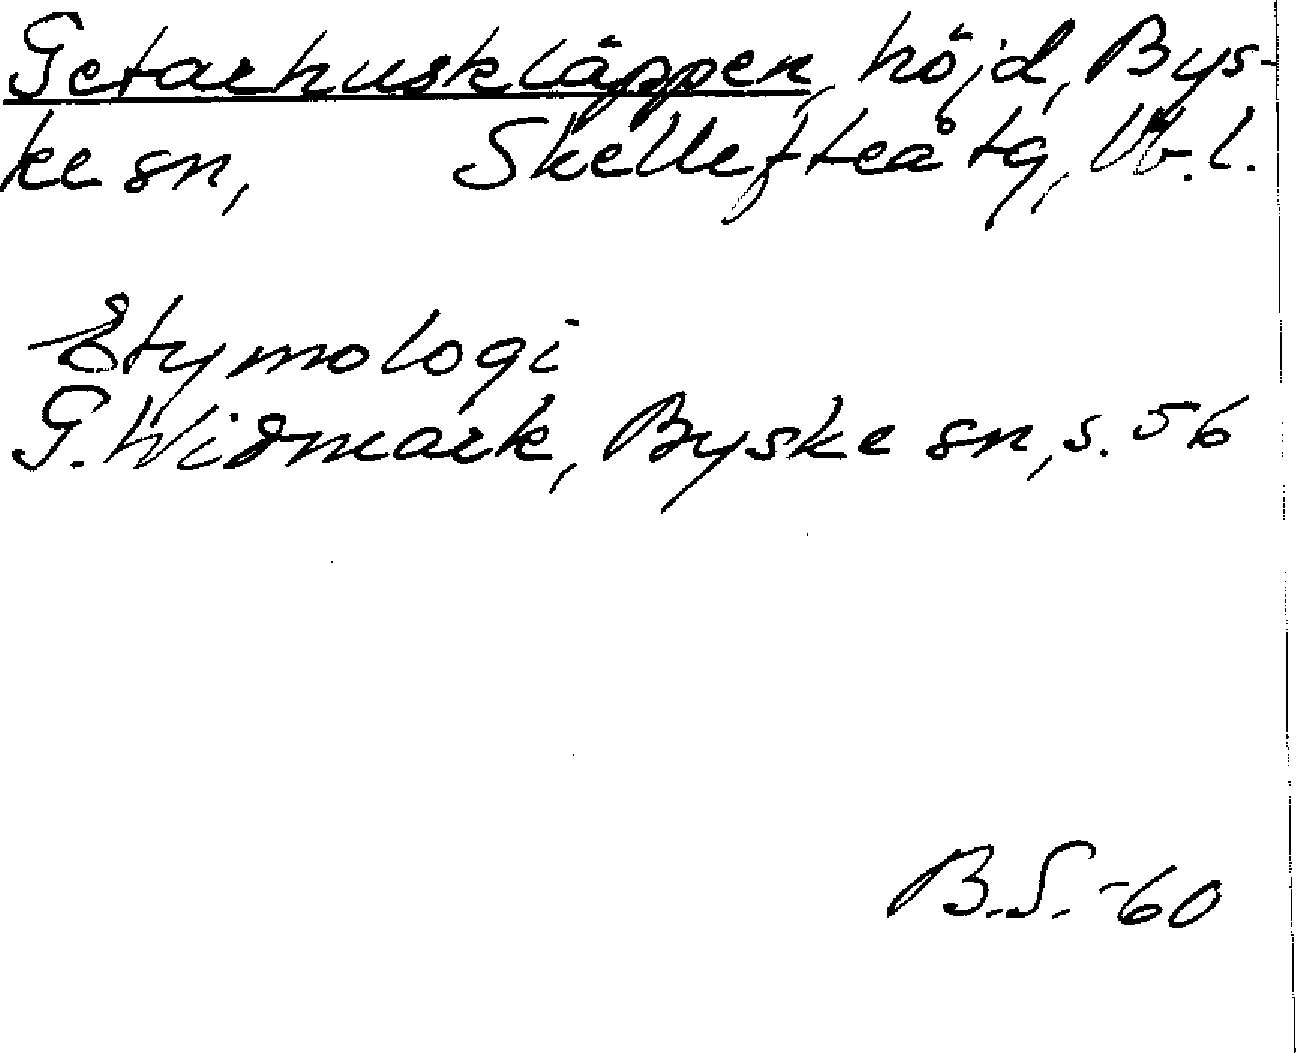 Getarhuskläppen, höjd, Bys-
ke sn, Skellefteå tg, Vb.l.
Etymologi
G. Widmark, Byske sn, s. 56
B.S. -60